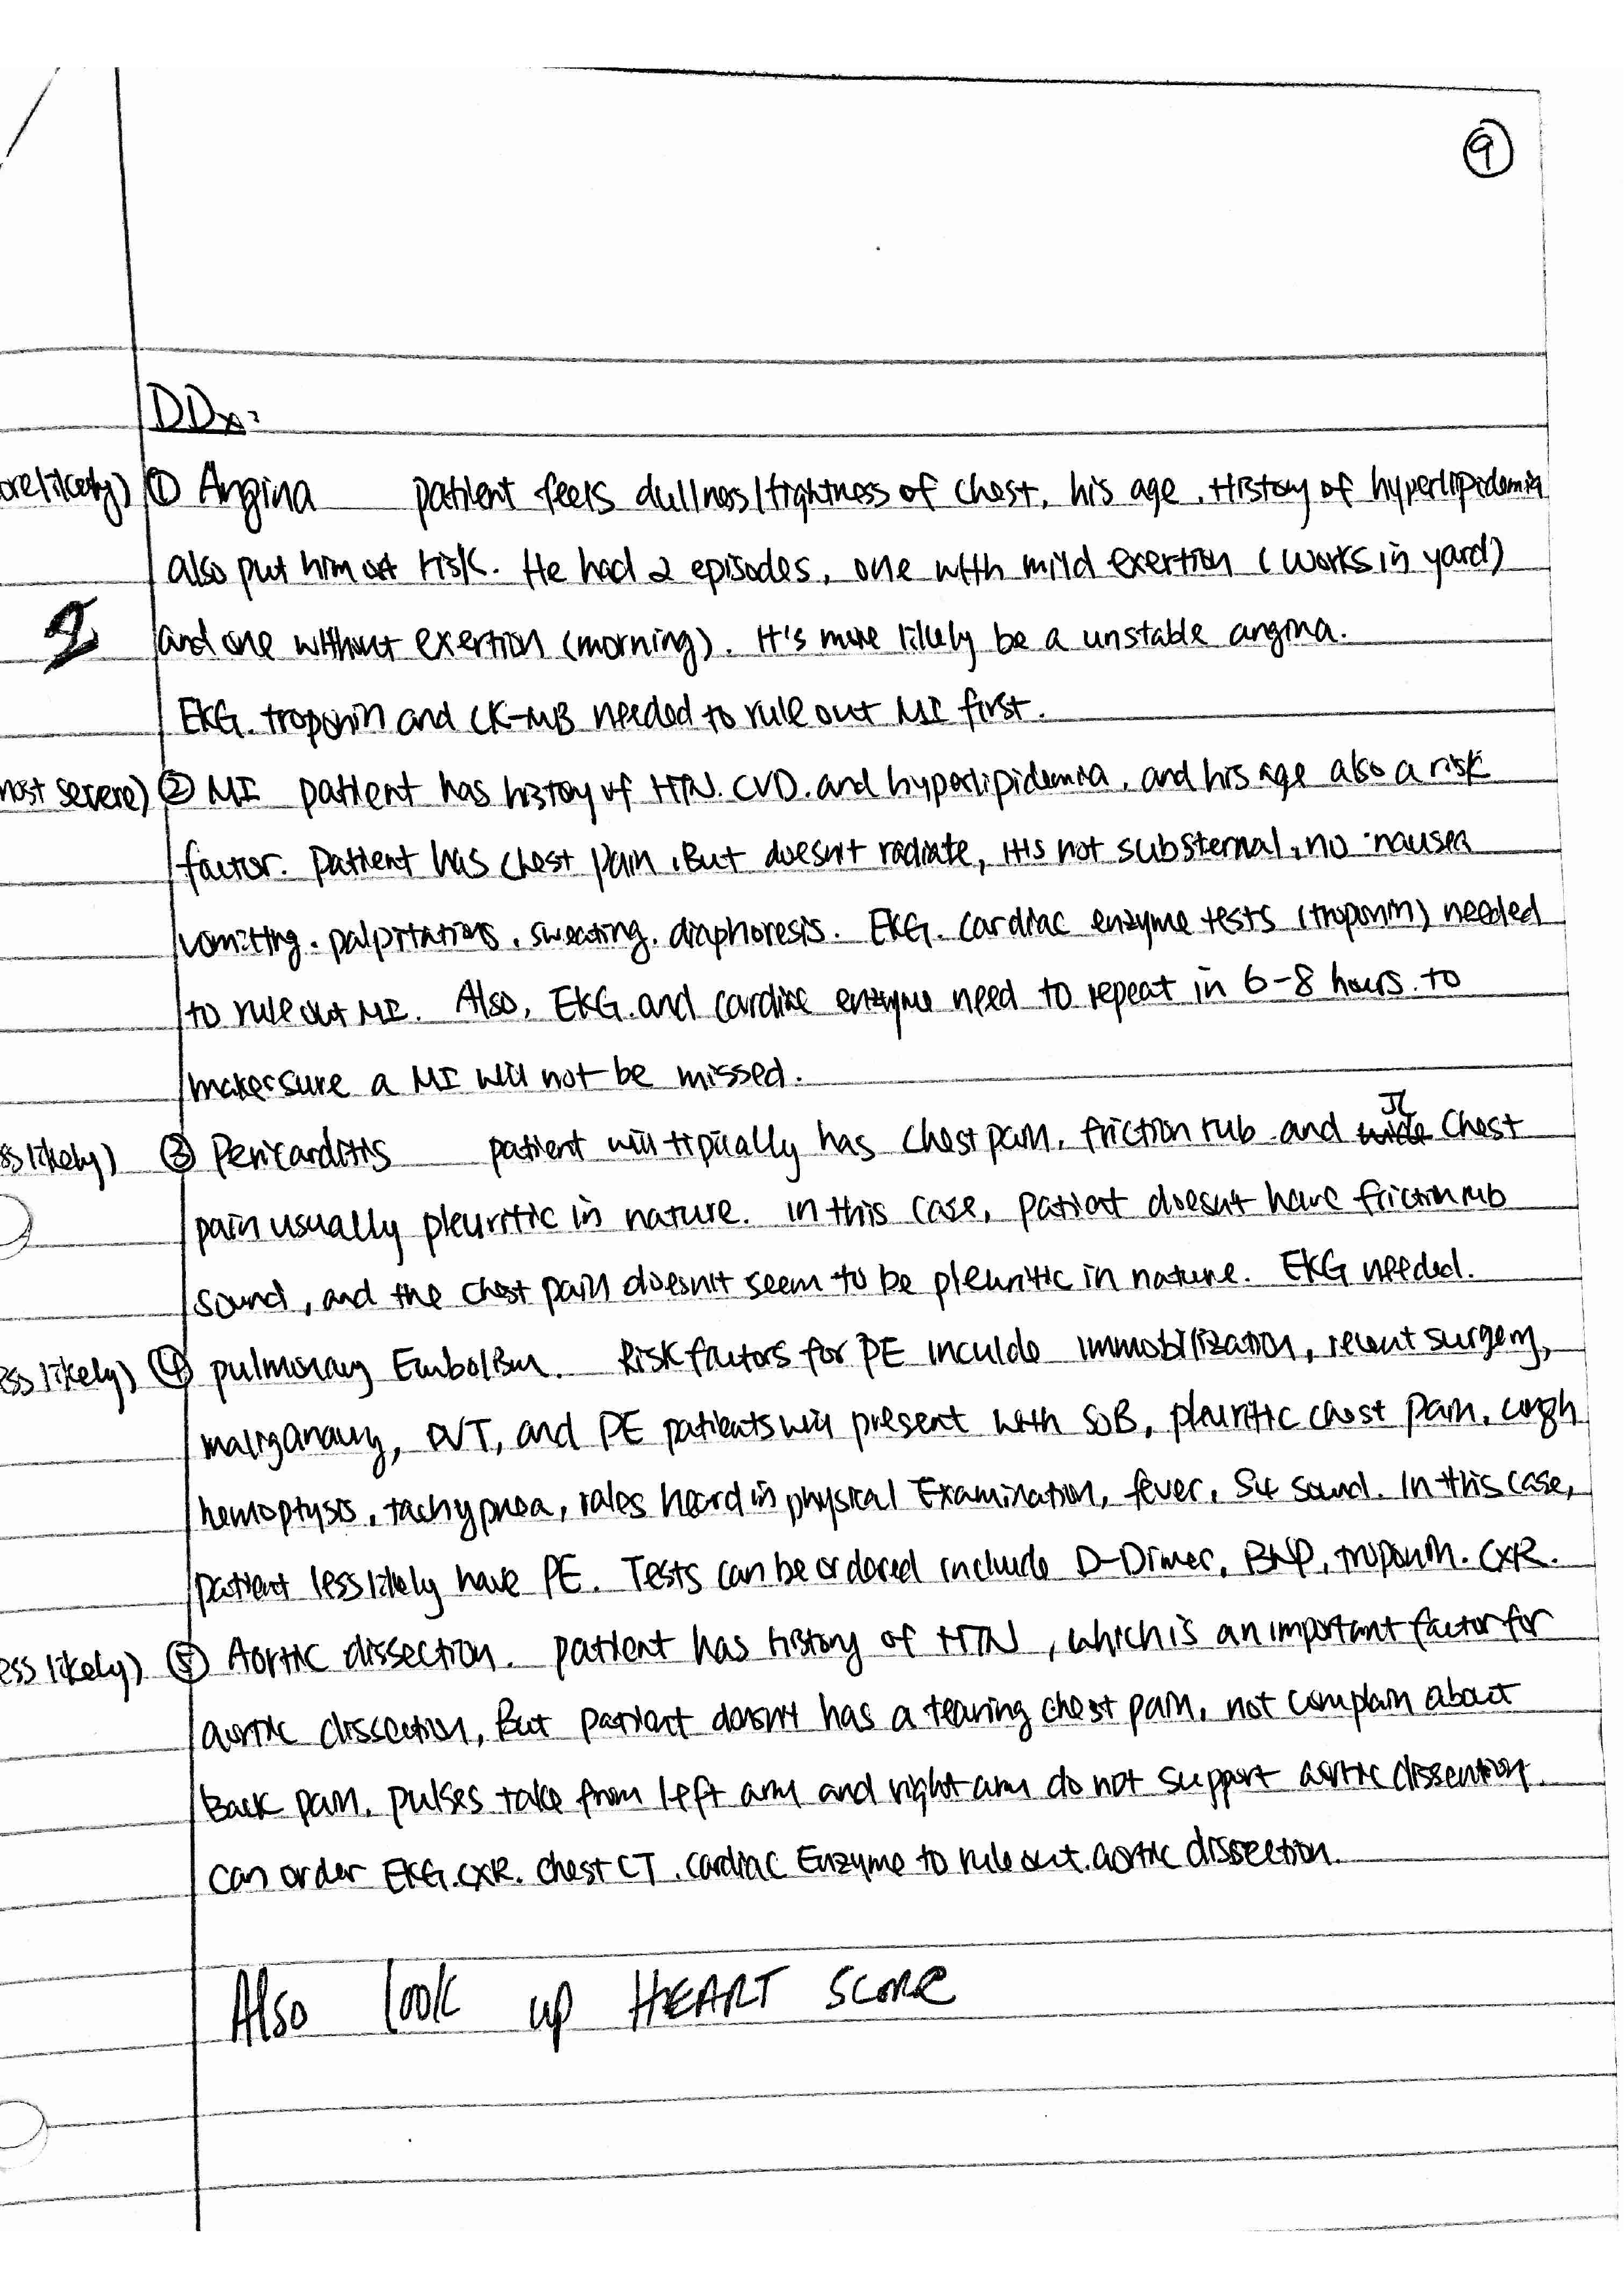 9
DDx:
ore likely) ① Angina patient feels dullness/tightness of chest, his age, History of hyperlipidemia
also put him at risk. He had 2 episodes, one with mild exertion (works in yard)
and one without exertion (morning). It's more likely be a unstable angina.
EKG. troponin and CK-MB needed to rule out MI first.
most severe) ② MI patient has history of HTN. CVD. and hyperlipidemia, and his age also a risk
factor. patient has chest pain, But doesn't radiate, it's not substernal, no nausea
vomitting. palpitations, sweating. diaphoresis. EKG. cardiac enzyme tests (troponin) needed
to rule out MI. Also, EKG. and cardiac enzyme need to repeat in 6-8 hours. to
makersure a MI will not be missed.
ss likely) ③ Pericarditis patient will tipically has chest pain, friction rub and chest
pain usually pleuritic in nature. in this case, patient doesn't have friction rub
sound, and the chest pain doesn't seem to be pleuritic in nature. EKG needed.
ess likely) ④ pulmonary Embolism. Risk factors for PE inculde immobilization, recent surgery,
maliganancy, DVT, and PE patients will present with SOB, pleuritic chest pain, cough
hemoptysis, tachypnea, rales heard in physical Examination, fever, S4 sound. In this case,
patient less likely have PE. Tests can be ordered include D-Dimer, BNP, troponin. CXR.
ess likely) ⑤ Aortic dissection. patient has history of HTN, which is an important factor for
aortic dissection, But patient doesn't has a tearing chest pain, not complain about
Back pain. pulses take from left arm and right arm do not support aortic dissention.
can order EKG. CXR. chest CT. cardiac Enzyme to rule out. aortic dissection.
Also look up HEART SCORE